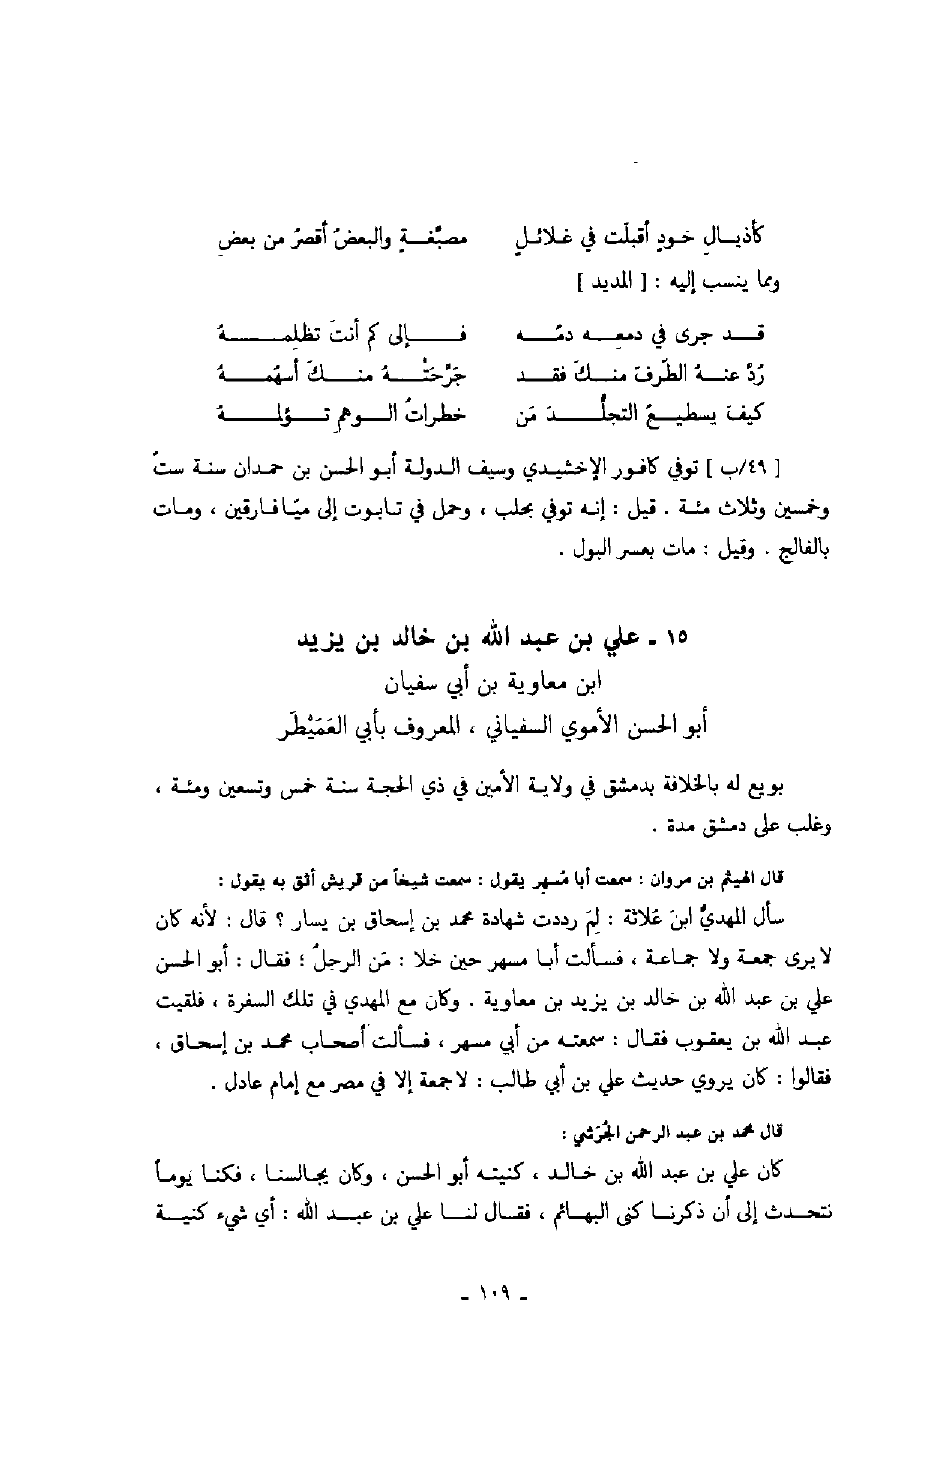 كأذيـالِ خـودٍ أقبلَت في غلائـلٍ    مصبَّغـةٍ والبعضُ أقصرُ من بعضِ
ومما ينسب إليه : [ المديد ]
قـد جرى في دمعـه دمُـه    فـإلى كم أنتَ تظلمـهُ
رُدَّ عنـهُ الطَّرفَ منـكَ فقـد    جَرَّحَتْـهُ منـكَ أسهُمـهُ
كيفَ يسطيـعُ التجلُّـدَ مَن    خطراتُ الوهمِ تـؤلمـهُ
[ ٤٩/ب ] توفي كافور الإخشيدي وسيف الدولة أبو الحسن بن حمدان سنة ستٍّ
وخمسين وثلاث مئة . قيل : إنه توفي بحلب ، وحمل في تابوت إلى ميّافارقين ، ومات
بالفالج . وقيل : مات بعسر البول .
١٥ ـ علي بن عبد الله بن خالد بن يزيد
ابن معاوية بن أبي سفيان
أبو الحسن الأموي السفياني ، المعروف بأبي العَمَيْطَر
بويع له بالخلافة بدمشق في ولاية الأمين في ذي الحجة سنة خمس وتسعين ومئة ،
وغلب على دمشق مدة .
قال الهيثم بن مروان : سمعت أبا مُسهر يقول : سمعت شيخاً من قريش أثق به يقول :
سأل المهديُّ ابنَ عُلاثة : لِمَ رددت شهادة محمد بن إسحاق بن يسار ؟ قال : لأنه كان
لا يرى جمعة ولا جماعة ، فسألت أبا مسهر حين خلا : مَن الرجلُ ؟ فقال : أبو الحسن
علي بن عبد الله بن خالد بن يزيد بن معاوية . وكان مع المهدي في تلك السفرة ، فلقيت
عبد الله بن يعقوب فقال : سمعته من أبي مسهر ، فسألت أصحاب محمد بن إسحاق ،
فقالوا : كان يروي حديث علي بن أبي طالب : لا جمعة إلا في مصر مع إمام عادل .
قال محمد بن عبد الرحمن الجُرَشي :
كان علي بن عبد الله بن خالد ، كنيته أبو الحسن ، وكان يجالسنا ، فكنا يوماً
نتحدث إلى أن ذكرنا كنى البهائم ، فقال لنا علي بن عبد الله : أي شيء كنية
ـ ١٠٩ ـ